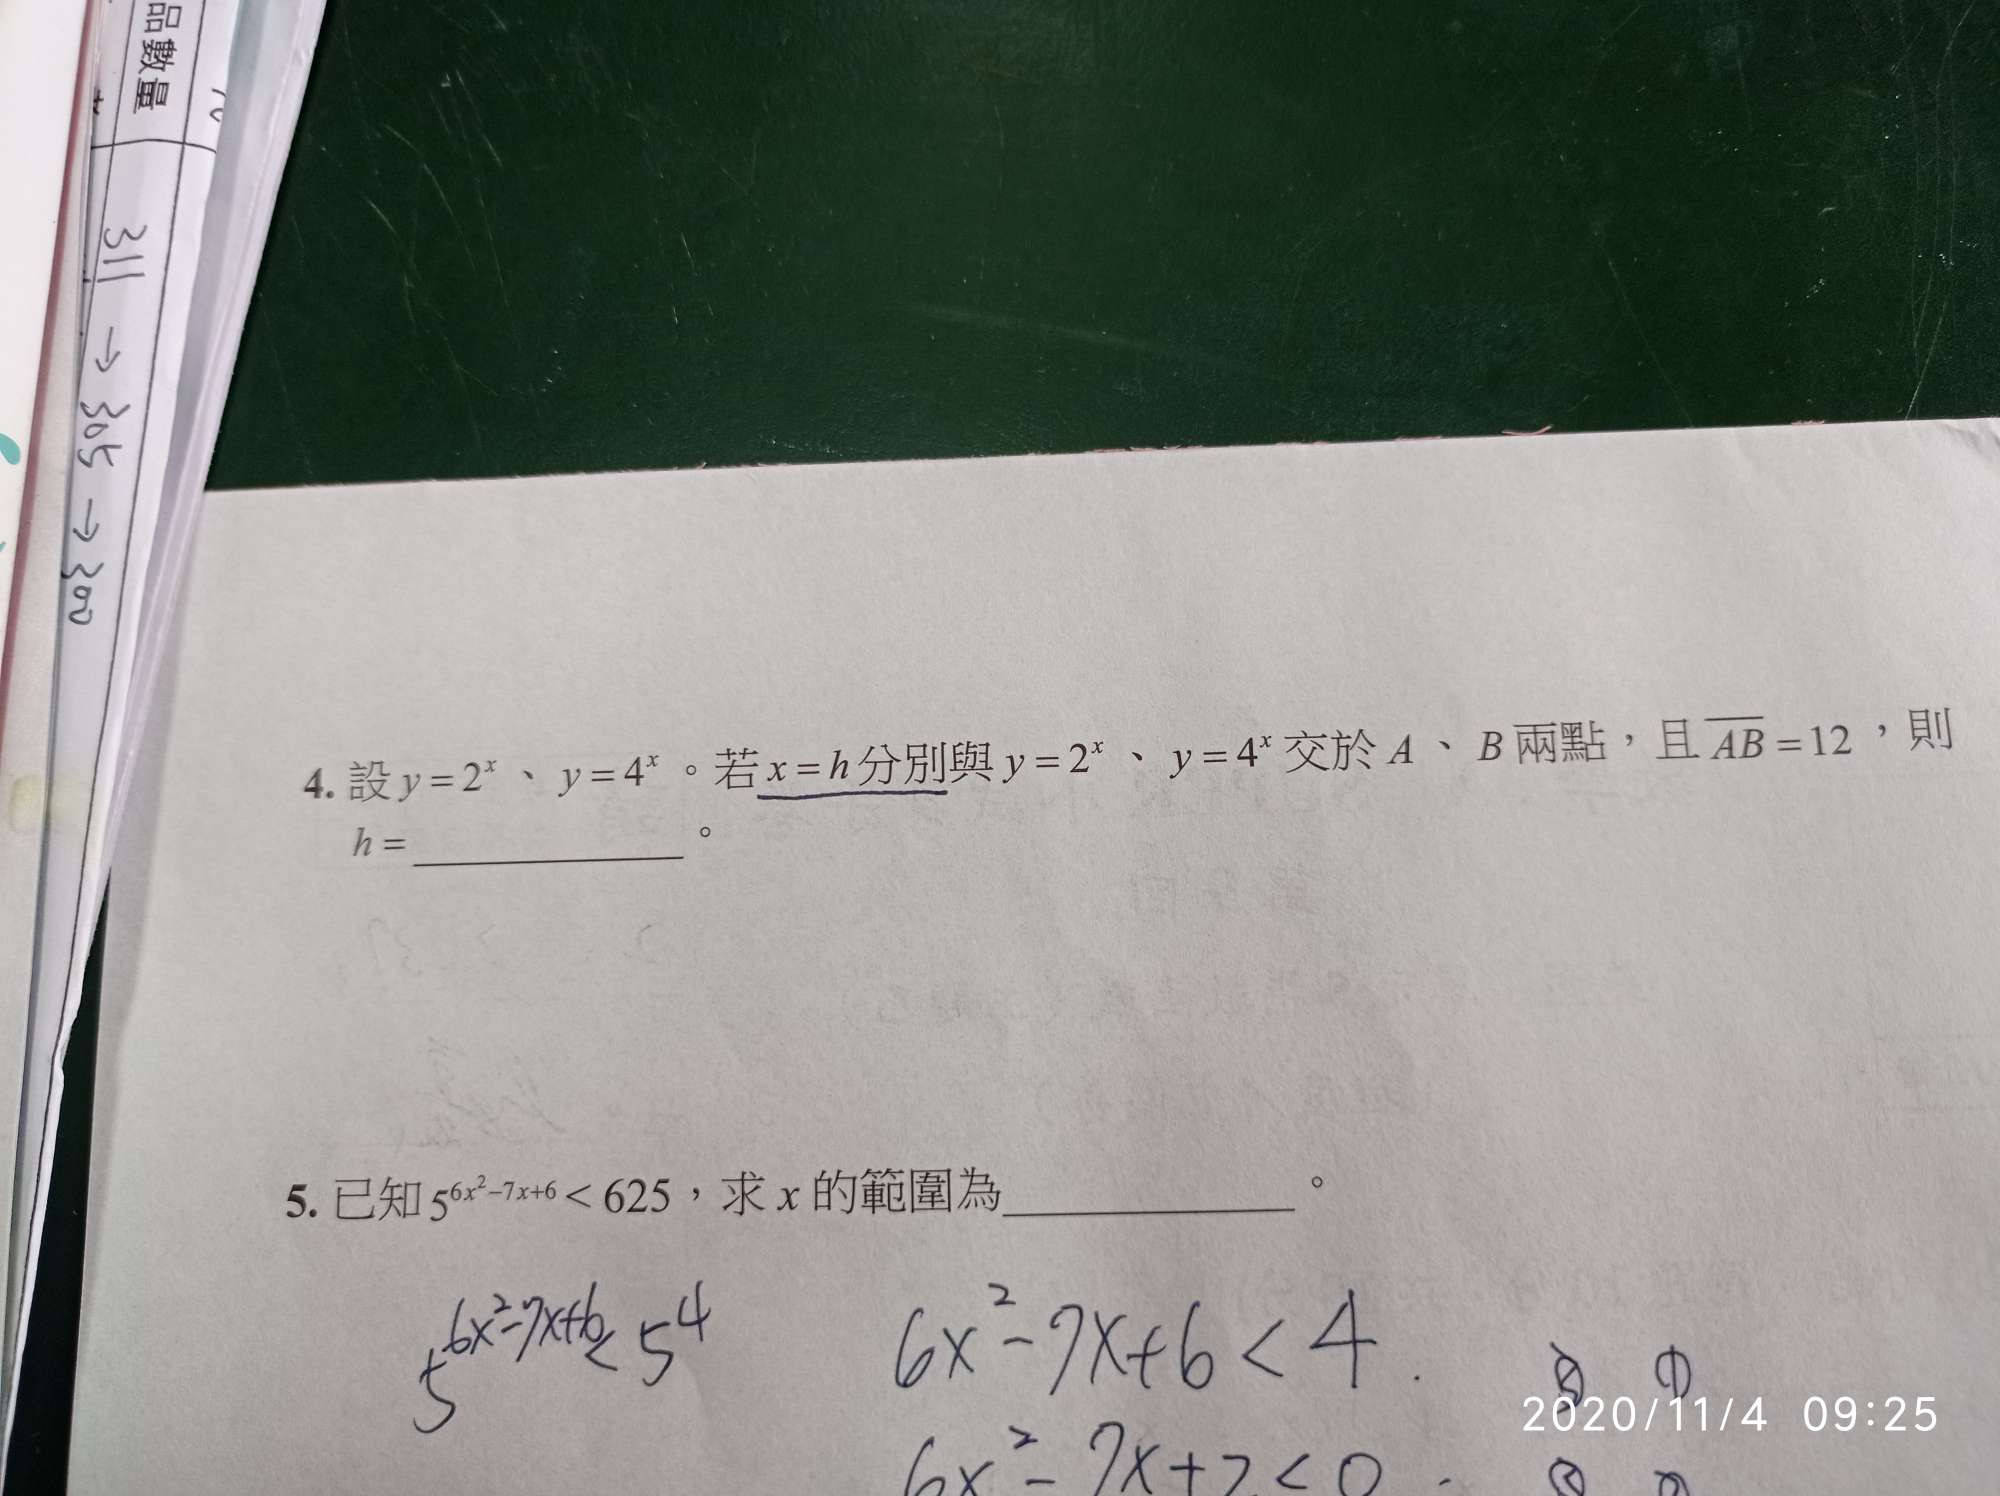 品數量
311 → 305 → 300
4. 設 y = 2^x 、 y = 4^x 。若 x = h 分別與 y = 2^x 、 y = 4^x 交於 A 、 B 兩點，且 AB = 12 ，則
h = ＿＿＿＿＿＿ 。
5. 已知 5^{6x²−7x+6} < 625，求 x 的範圍為＿＿＿＿＿＿ 。
5^{6x²-7x+6} < 5^4 6x²-7x+6 < 4 .
6x²-7x+2 < 0 .
2020/11/4 09:25